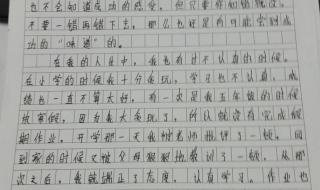 也不会知道成功的感受，但只要你知错就改，
不要一错再错下去，那么也好是有可能会到成
功的“味道”的。
在我的人生中，我也有过不认真的时候。
在小学的时候我十分贪玩，学习也不认真，成
绩也一直不算太好，有一次是我五年级的时候
放寒假，因为我太贪玩了，所以就没有完成假
期作业。开学那天我被老师批评了一顿。回
到家的时候又被父母狠狠地教训了一顿。从那
次之后，我就端正了态度，认真学习，作业也